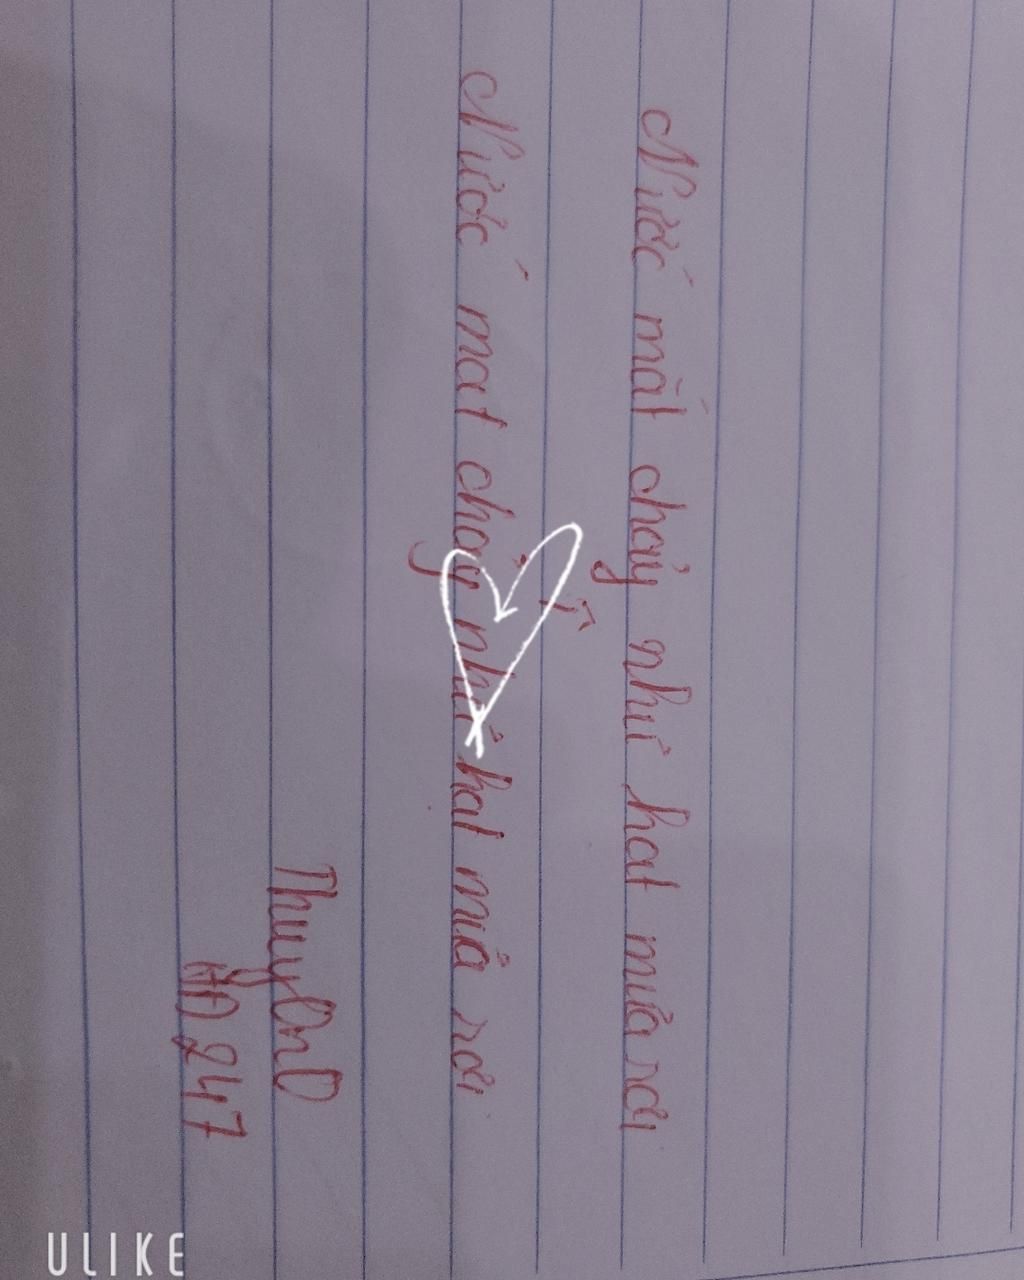 Nước mắt chảy như hat mưa rơi
Nước mat chảy như hat mưa rơi
HD 247
ULIKE